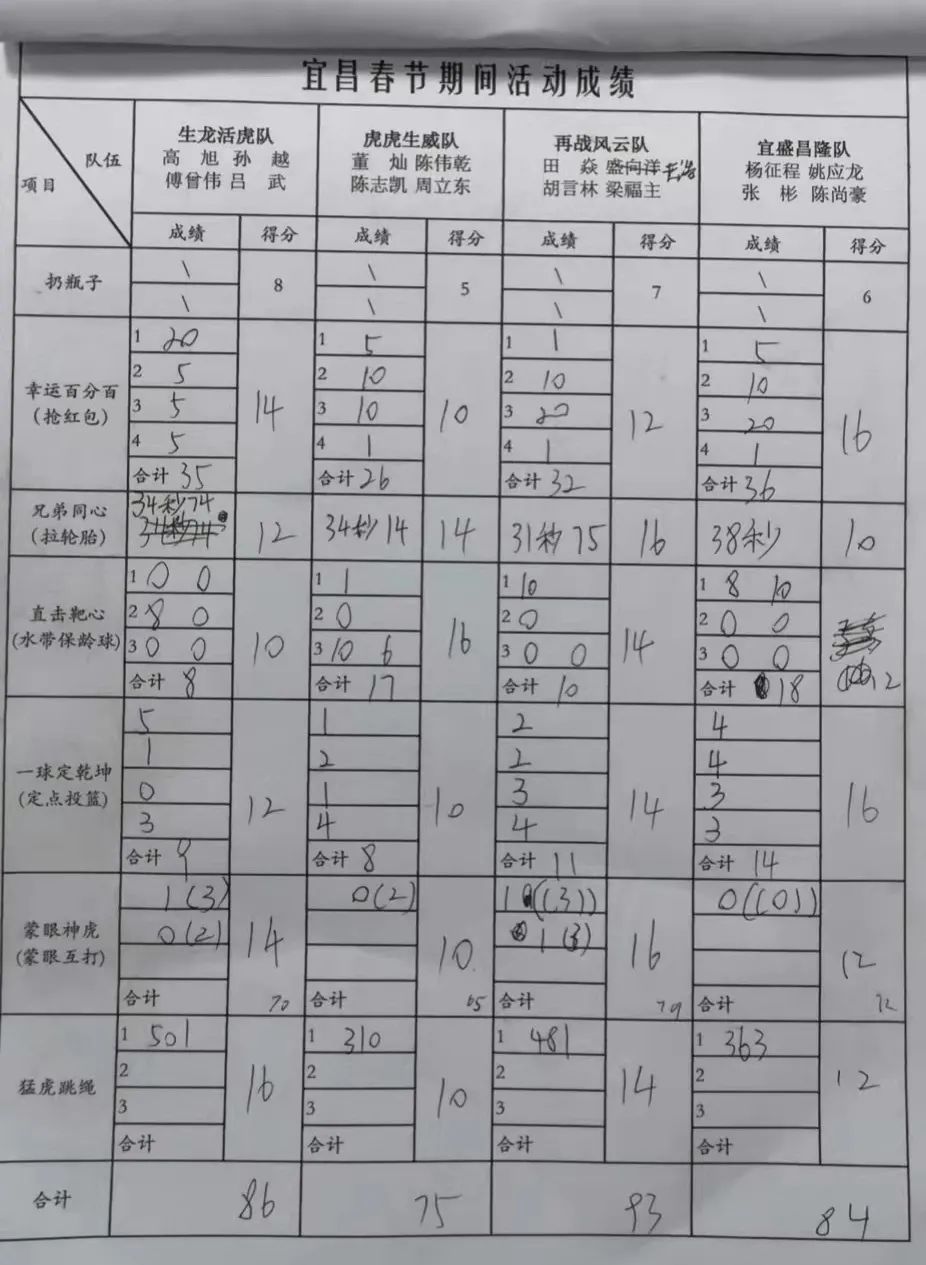 宜昌春节期间活动成绩
队伍
项目
生龙活虎队
高 旭 孙 越
傅曾伟 吕 武
虎虎生威队
董 灿 陈伟乾
陈志凯 周立东
再战风云队
田 焱 盛向洋
胡言林 梁福主
宜盛昌隆队
杨征程 姚应龙
张 彬 陈尚豪
成绩 得分 成绩 得分 成绩 得分 成绩 得分
扔瓶子
\ \ \ \
8 5 7 6
\ \ \ \
幸运百分百
(抢红包)
1 20 1 5 1 1 1 5
2 5 2 10 2 10 2 10
3 5 3 10 3 20 3 20
4 5 4 1 4 1 4 1
14 10 12 16
合计 35 合计 26 合计 32 合计 36
兄弟同心
(拉轮胎)
34秒74
12 34秒14 14 31秒75 16 38秒 10
直击靶心
(水带保龄球)
1 0 0 1 1 1 10 1 8 10
2 8 0 2 0 2 0 2 0 0
3 0 0 3 10 6 3 0 0 3 0 0
10 16 14 12
合计 8 合计 17 合计 10 合计 18
一球定乾坤
(定点投篮)
5 1 2 4
1 2 2 4
0 1 3 3
3 4 4 3
12 10 14 16
合计 9 合计 8 合计 11 合计 14
蒙眼神虎
(蒙眼互打)
1(3) 0(2) 1((3)) 0((0))
0(2) 1(3)
14 10 16 12
合计 70 合计 65 合计 79 合计 72
猛虎跳绳
1 501 1 310 1 481 1 363
2 2 2 2
3 3 3 3
16 10 14 12
合计 合计 合计 合计
合计 86 75 93 84